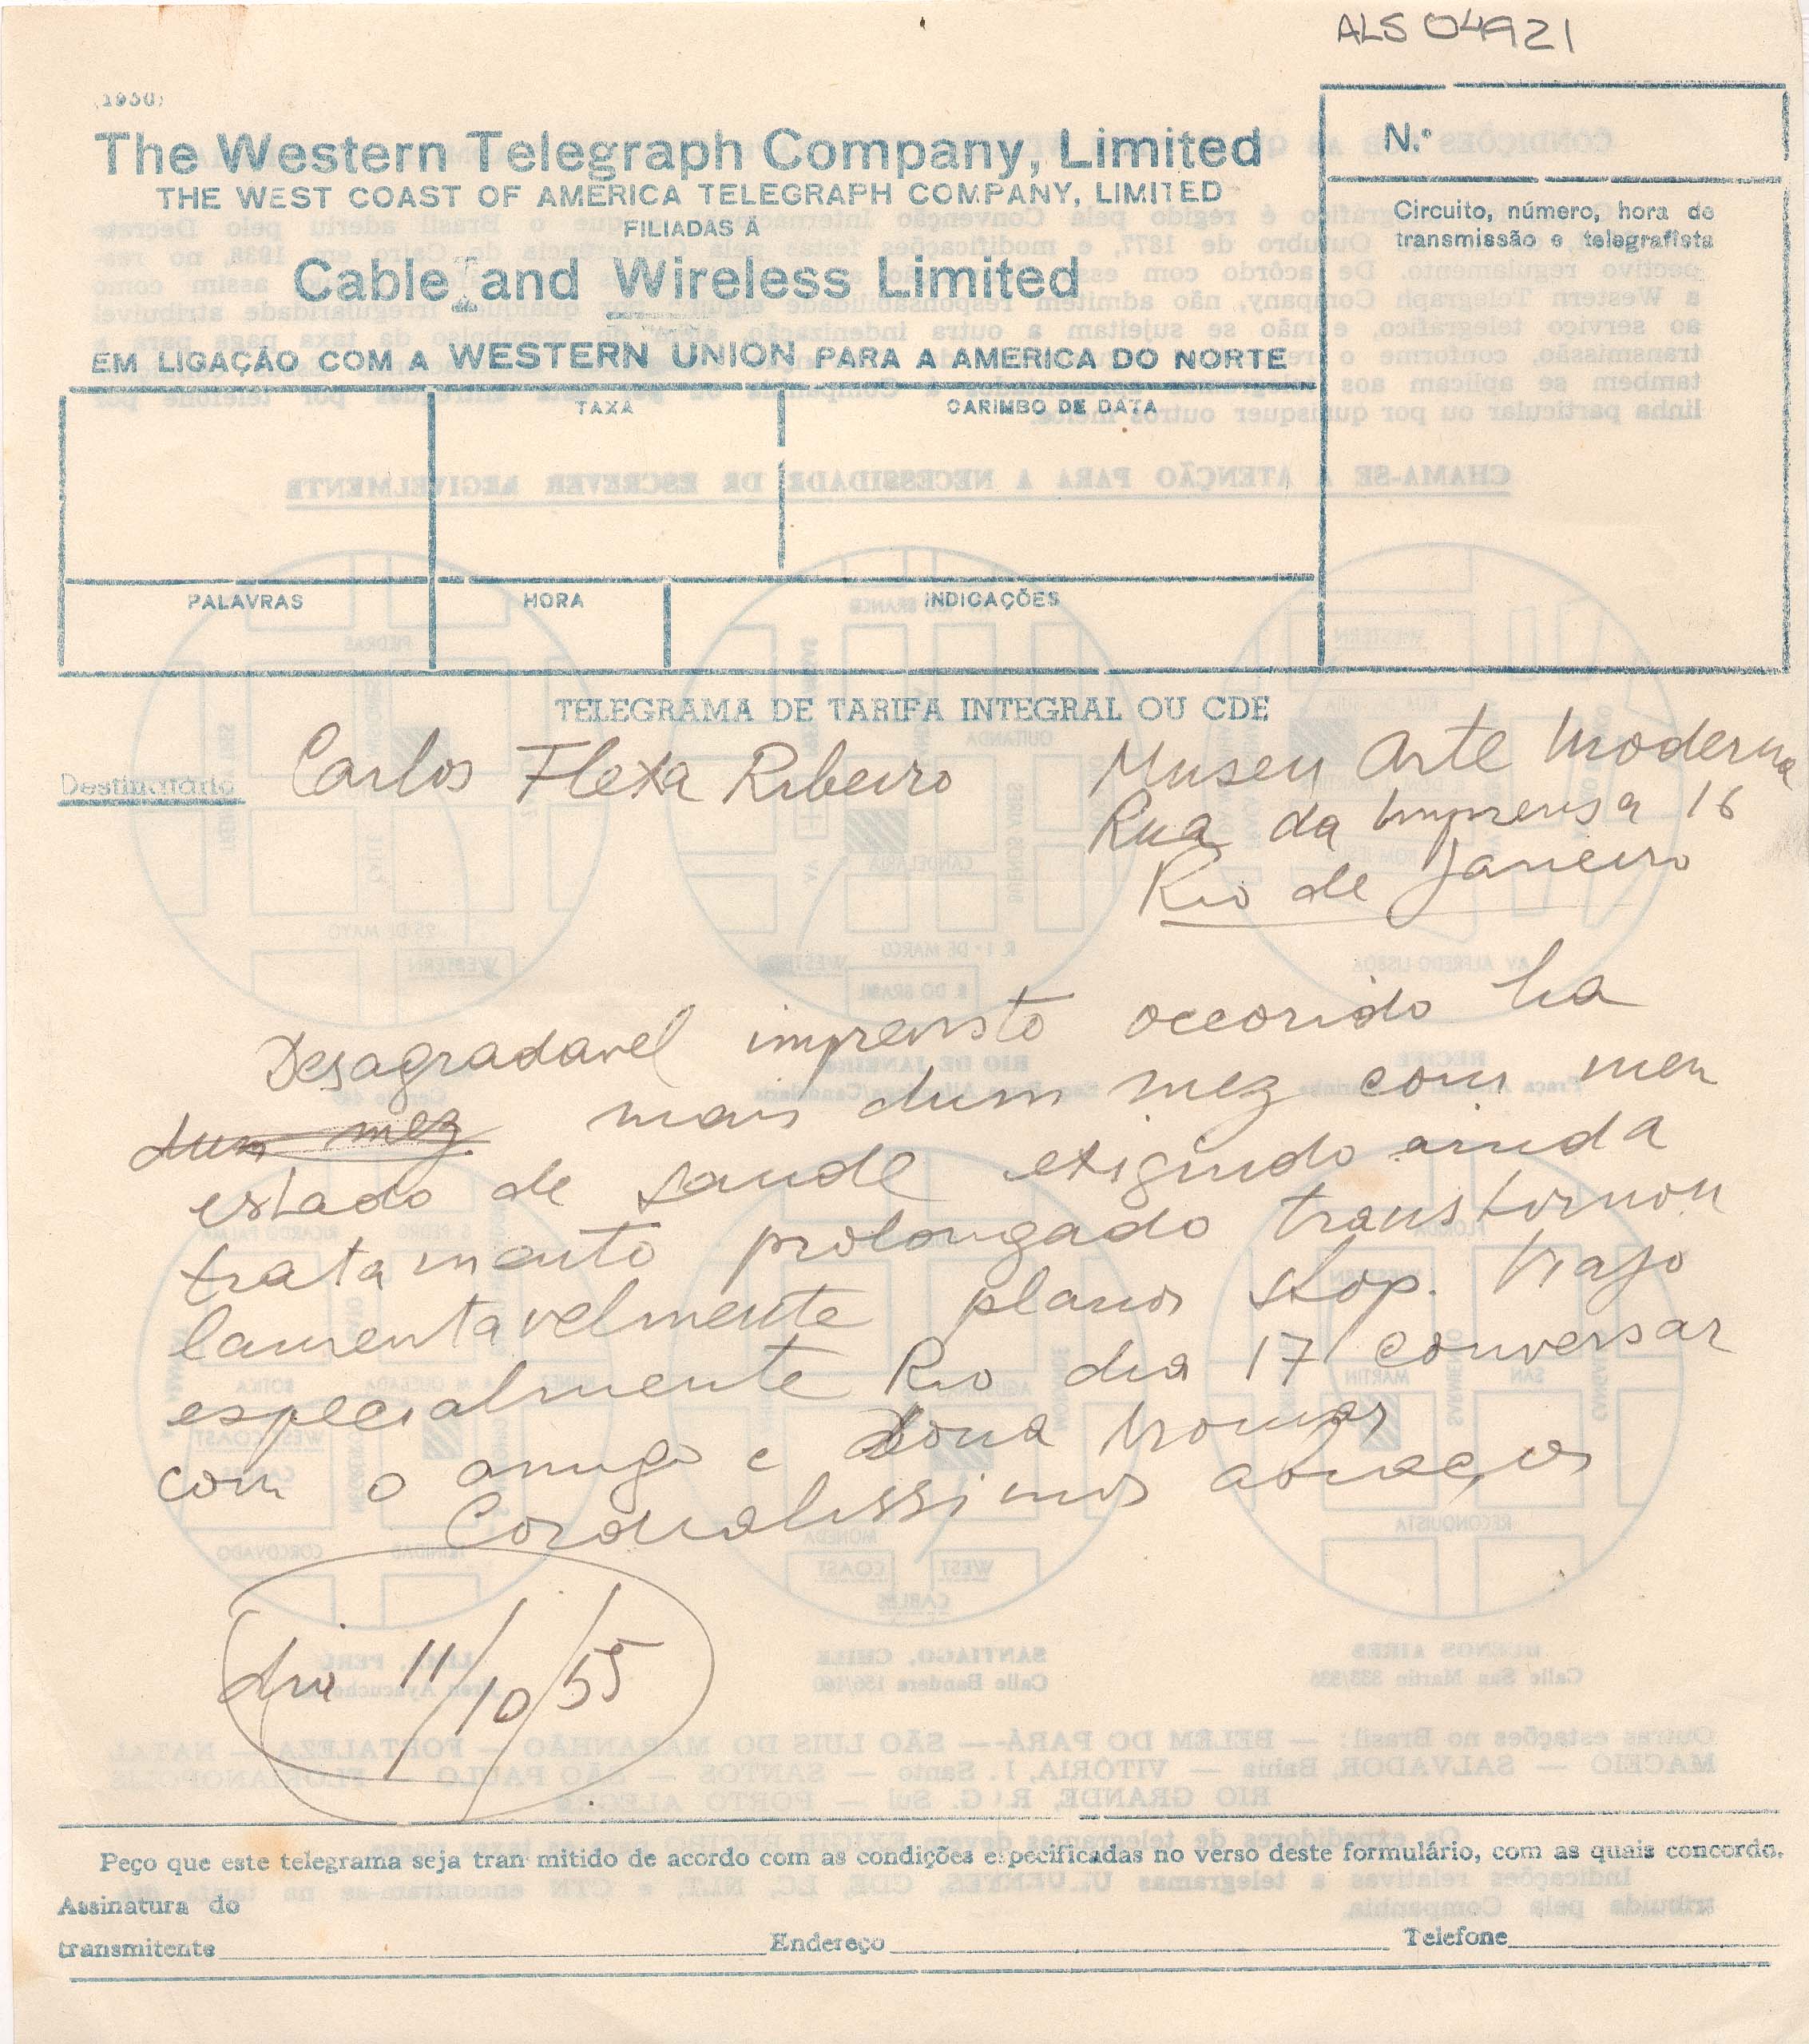 ALS 04921
(1950)
The Western Telegraph Company, Limited
THE WEST COAST OF AMERICA TELEGRAPH COMPANY, LIMITED
FILIADAS À
Cable and Wireless Limited
EM LIGAÇÃO COM A WESTERN UNION PARA A AMERICA DO NORTE
N.º
Circuito, número, hora de
transmissão e telegrafista
TAXA
CARIMBO DE DATA
PALAVRAS
HORA
INDICAÇÕES
TELEGRAMA DE TARIFA INTEGRAL OU CDE
Destinatário
Carlos Flexa Ribeiro
Museu Arte Moderna
Rua da Imprensa 16
Rio de Janeiro
Desagradavel imprevisto occorido ha
dum mez mais dum mez com meu
estado de saude exigindo ainda
tratamento prolongado transtornou
lamentavelmente planos stop. Viajo
especialmente Rio dia 17 conversar
com o amigo e Dona
Cordialissimos abraços
dia 11/10/55
Peço que este telegrama seja tran mitido de acordo com as condições e pecificadas no verso deste formulário, com as quais concordo.
Assinatura do
transmitente
Endereço
Telefone